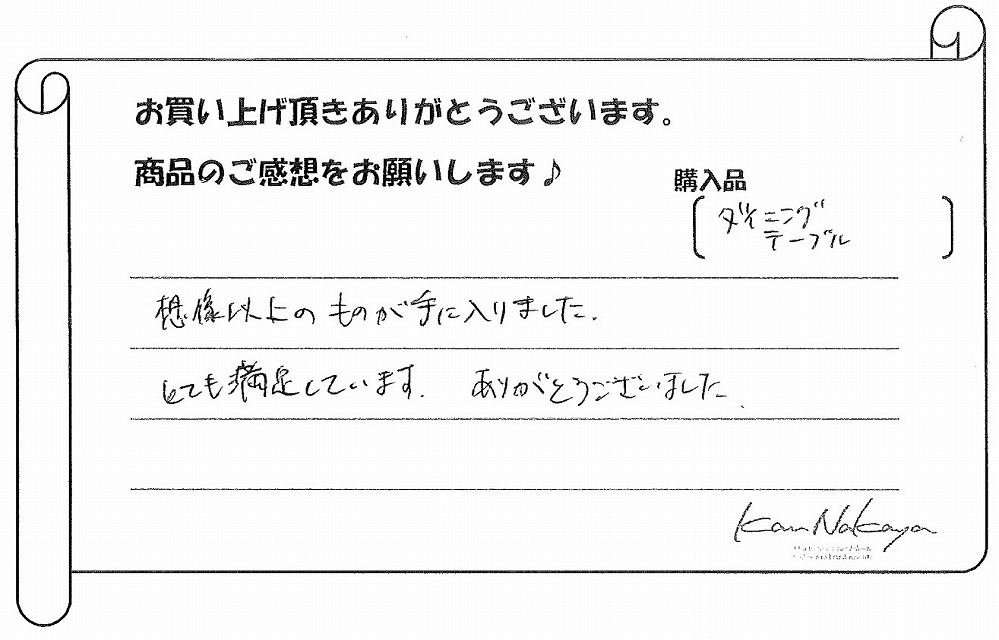 お買い上げ頂きありがとうございます。
商品のご感想をお願いします♪
購入品
ダイニング
テーブル
想像以上のものが手に入りました.
とても満足しています. ありがとうございました.
Kan Nakaya